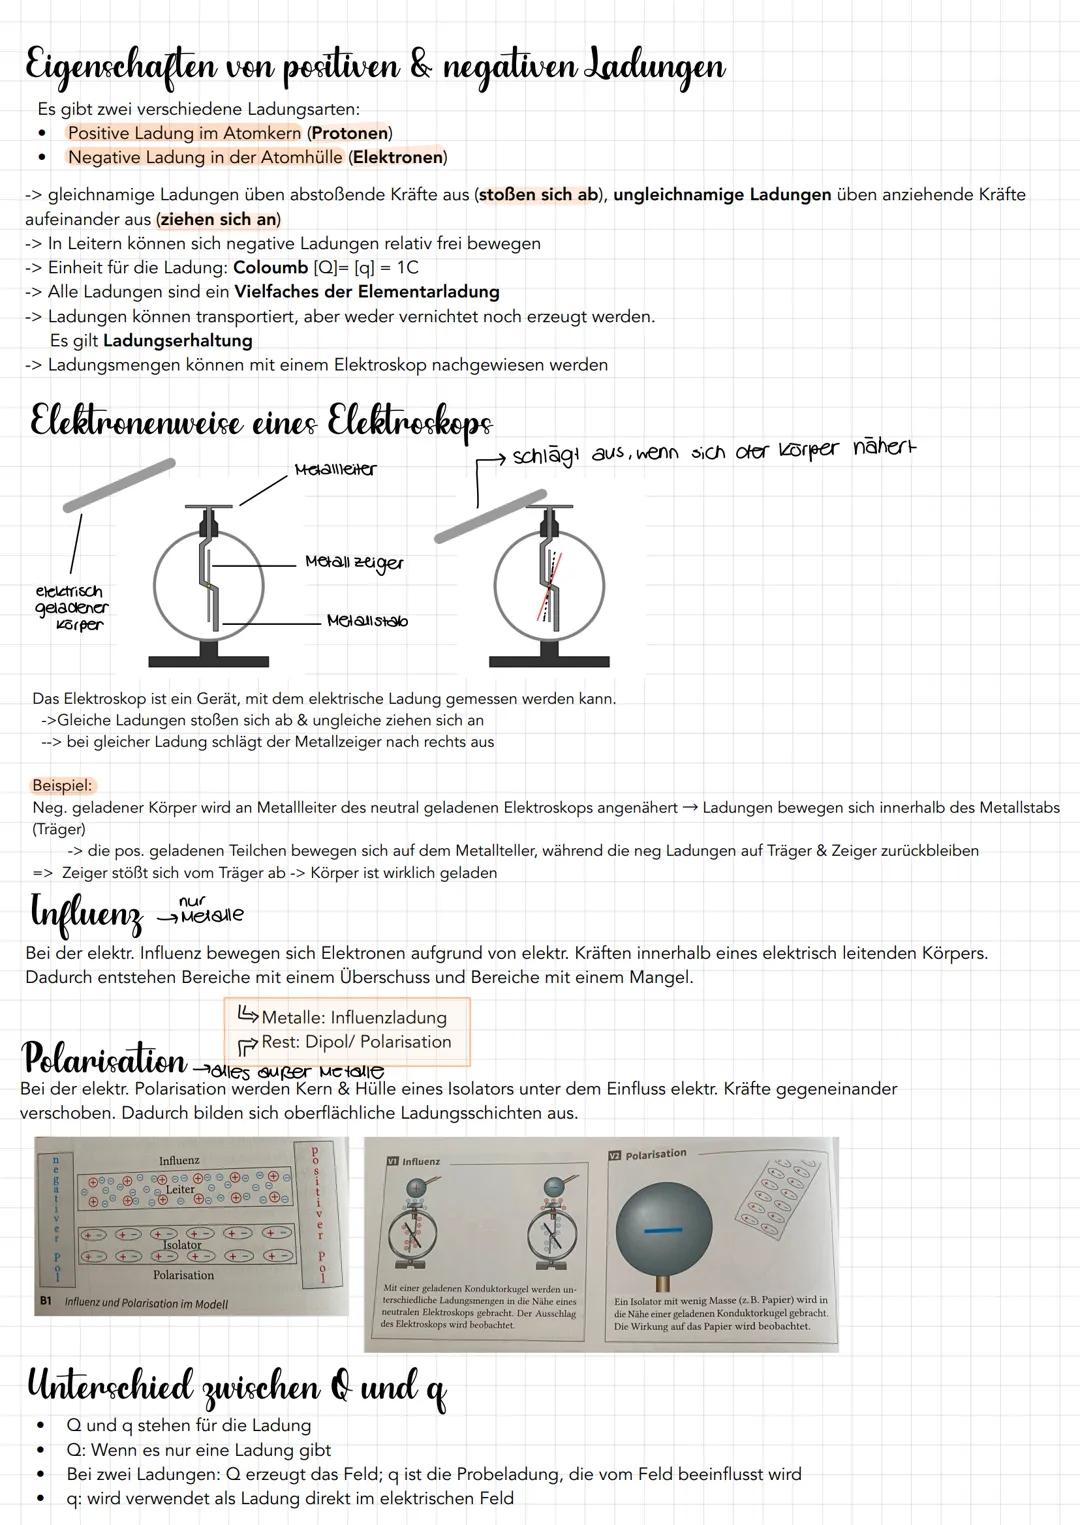 Eigenschaften von positiven & negativen Ladungen
Es gibt zwei verschiedene Ladungsarten:
• Positive Ladung im Atomkern (Protonen)
• Negative Ladung in der Atomhülle (Elektronen)
-> gleichnamige Ladungen üben abstoßende Kräfte aus (stoßen sich ab), ungleichnamige Ladungen üben anziehende Kräfte
aufeinander aus (ziehen sich an)
-> In Leitern können sich negative Ladungen relativ frei bewegen
-> Einheit für die Ladung: Coloumb [Q]= [q] = 1C
-> Alle Ladungen sind ein Vielfaches der Elementarladung
-> Ladungen können transportiert, aber weder vernichtet noch erzeugt werden.
Es gilt Ladungserhaltung
-> Ladungsmengen können mit einem Elektroskop nachgewiesen werden
Elektronenweise eines Elektroskops
→ schlägt aus, wenn sich der Körper nähert
Metallleiter
Metallzeiger
elektrisch
geladener
Körper
Metallstab
Das Elektroskop ist ein Gerät, mit dem elektrische Ladung gemessen werden kann.
->Gleiche Ladungen stoßen sich ab & ungleiche ziehen sich an
--> bei gleicher Ladung schlägt der Metallzeiger nach rechts aus
Beispiel:
Neg. geladener Körper wird an Metallleiter des neutral geladenen Elektroskops angenähert → Ladungen bewegen sich innerhalb des Metallstabs
(Träger)
-> die pos. geladenen Teilchen bewegen sich auf dem Metallteller, während die neg Ladungen auf Träger & Zeiger zurückbleiben
=> Zeiger stößt sich vom Träger ab -> Körper ist wirklich geladen
Influenz → nur Metalle
Bei der elektr. Influenz bewegen sich Elektronen aufgrund von elektr. Kräften innerhalb eines elektrisch leitenden Körpers.
Dadurch entstehen Bereiche mit einem Überschuss und Bereiche mit einem Mangel.
Metalle: Influenzladung
Rest: Dipol/ Polarisation
Polarisation → alles außer Metalle
Bei der elektr. Polarisation werden Kern & Hülle eines Isolators unter dem Einfluss elektr. Kräfte gegeneinander
verschoben. Dadurch bilden sich oberflächliche Ladungsschichten aus.
negativer Pol
Influenz
Leiter
Isolator
Polarisation
positiver Pol
B1 Influenz und Polarisation im Modell
V1 Influenz
Mit einer geladenen Konduktorkugel werden un-
terschiedliche Ladungsmengen in die Nähe eines
neutralen Elektroskops gebracht. Der Ausschlag
des Elektroskops wird beobachtet.
V2 Polarisation
Ein Isolator mit wenig Masse (z. B. Papier) wird in
die Nähe einer geladenen Konduktorkugel gebracht.
Die Wirkung auf das Papier wird beobachtet.
Unterschied zwischen Q und q
• Q und q stehen für die Ladung
• Q: Wenn es nur eine Ladung gibt
• Bei zwei Ladungen: Q erzeugt das Feld; q ist die Probeladung, die vom Feld beeinflusst wird
• q: wird verwendet als Ladung direkt im elektrischen Feld